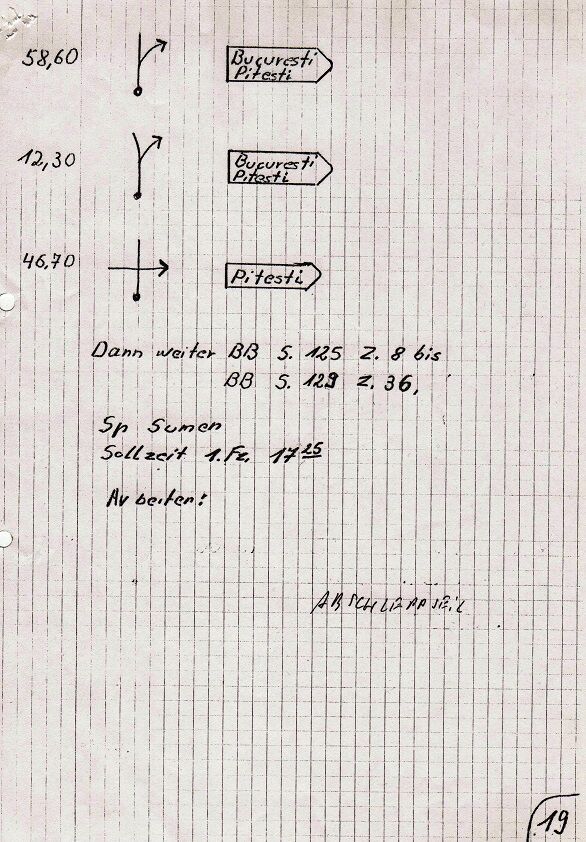 58,60
Bucuresti
Pitesti
12,30
Bucuresti
Pitesti
46,70
Pitesti
Dann weiter BB S. 125 Z. 8 bis
BB S. 129 Z. 36,
Sp Sumen
Sollzeit 1. Fz. 17 25
Arbeiten:
ABSCHLEPPSEIL
19